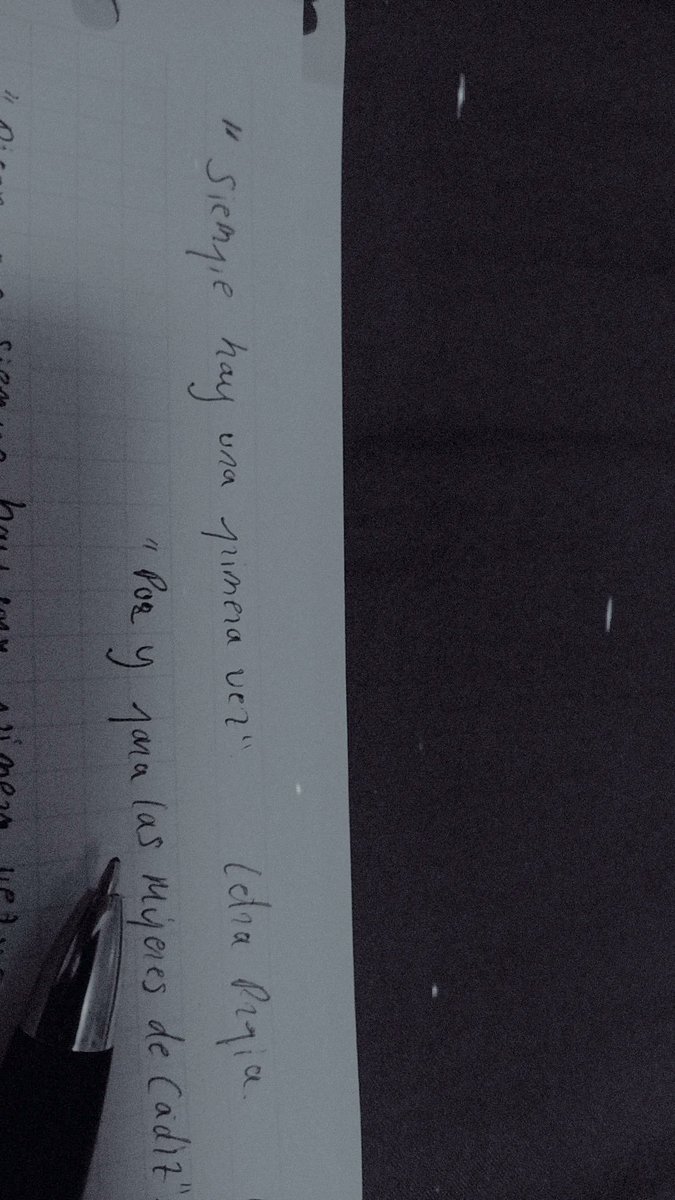 "Siempre hay una primera vez" Letra Propia.
"Por y para las mujeres de Cádiz".
"Dicen que siempre hay una primera vez